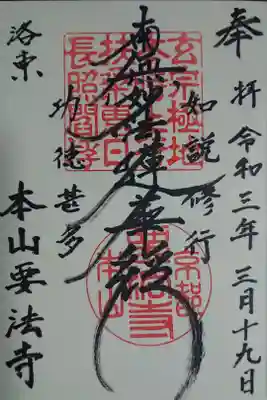 奉拝 令和三年 三月十九日
如説修行
南無妙法蓮華経
功徳甚多
洛東 本山要法寺
玄宗極地
長照閻浮
京都
要法寺
本山